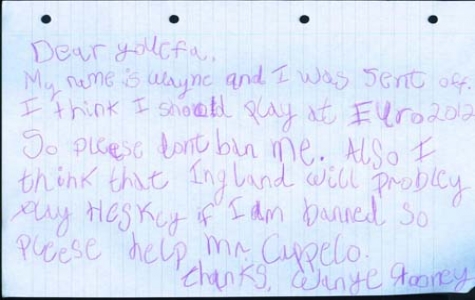 Dear youcfa,
My name is wayne and I was sent off.
I think I should play at Euro2012
So pleese dont ban me. Also I
think that Ingland will probley
play Heskey if I am banned So
pleese help Mr. Cappelo.
thanks, Wanye Rooney